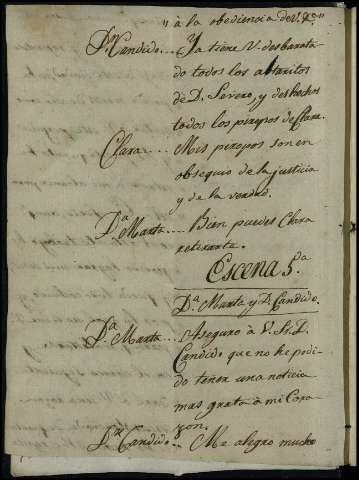 " à la obediencia de V. &c.ª"
D.n Candido.... Ya tiene V. desbarata-
do todos los altaritos
de D. Severo, y deshechos
todos los piropos de Clara.
Clara..... Mis piropos son en
obsequio de la justicia
y de la verdad.
D.ª Marta... Bien puedes Clara
retirarte.
Escena 5.ª
D.ª Marta y D. Candido.
D.ª Marta... Aseguro à V. Sr. D.
Candido que no he podi-
do tener una noticia
mas grata à mi Cora-
zon.
D.n Candido... Me alegro mucho